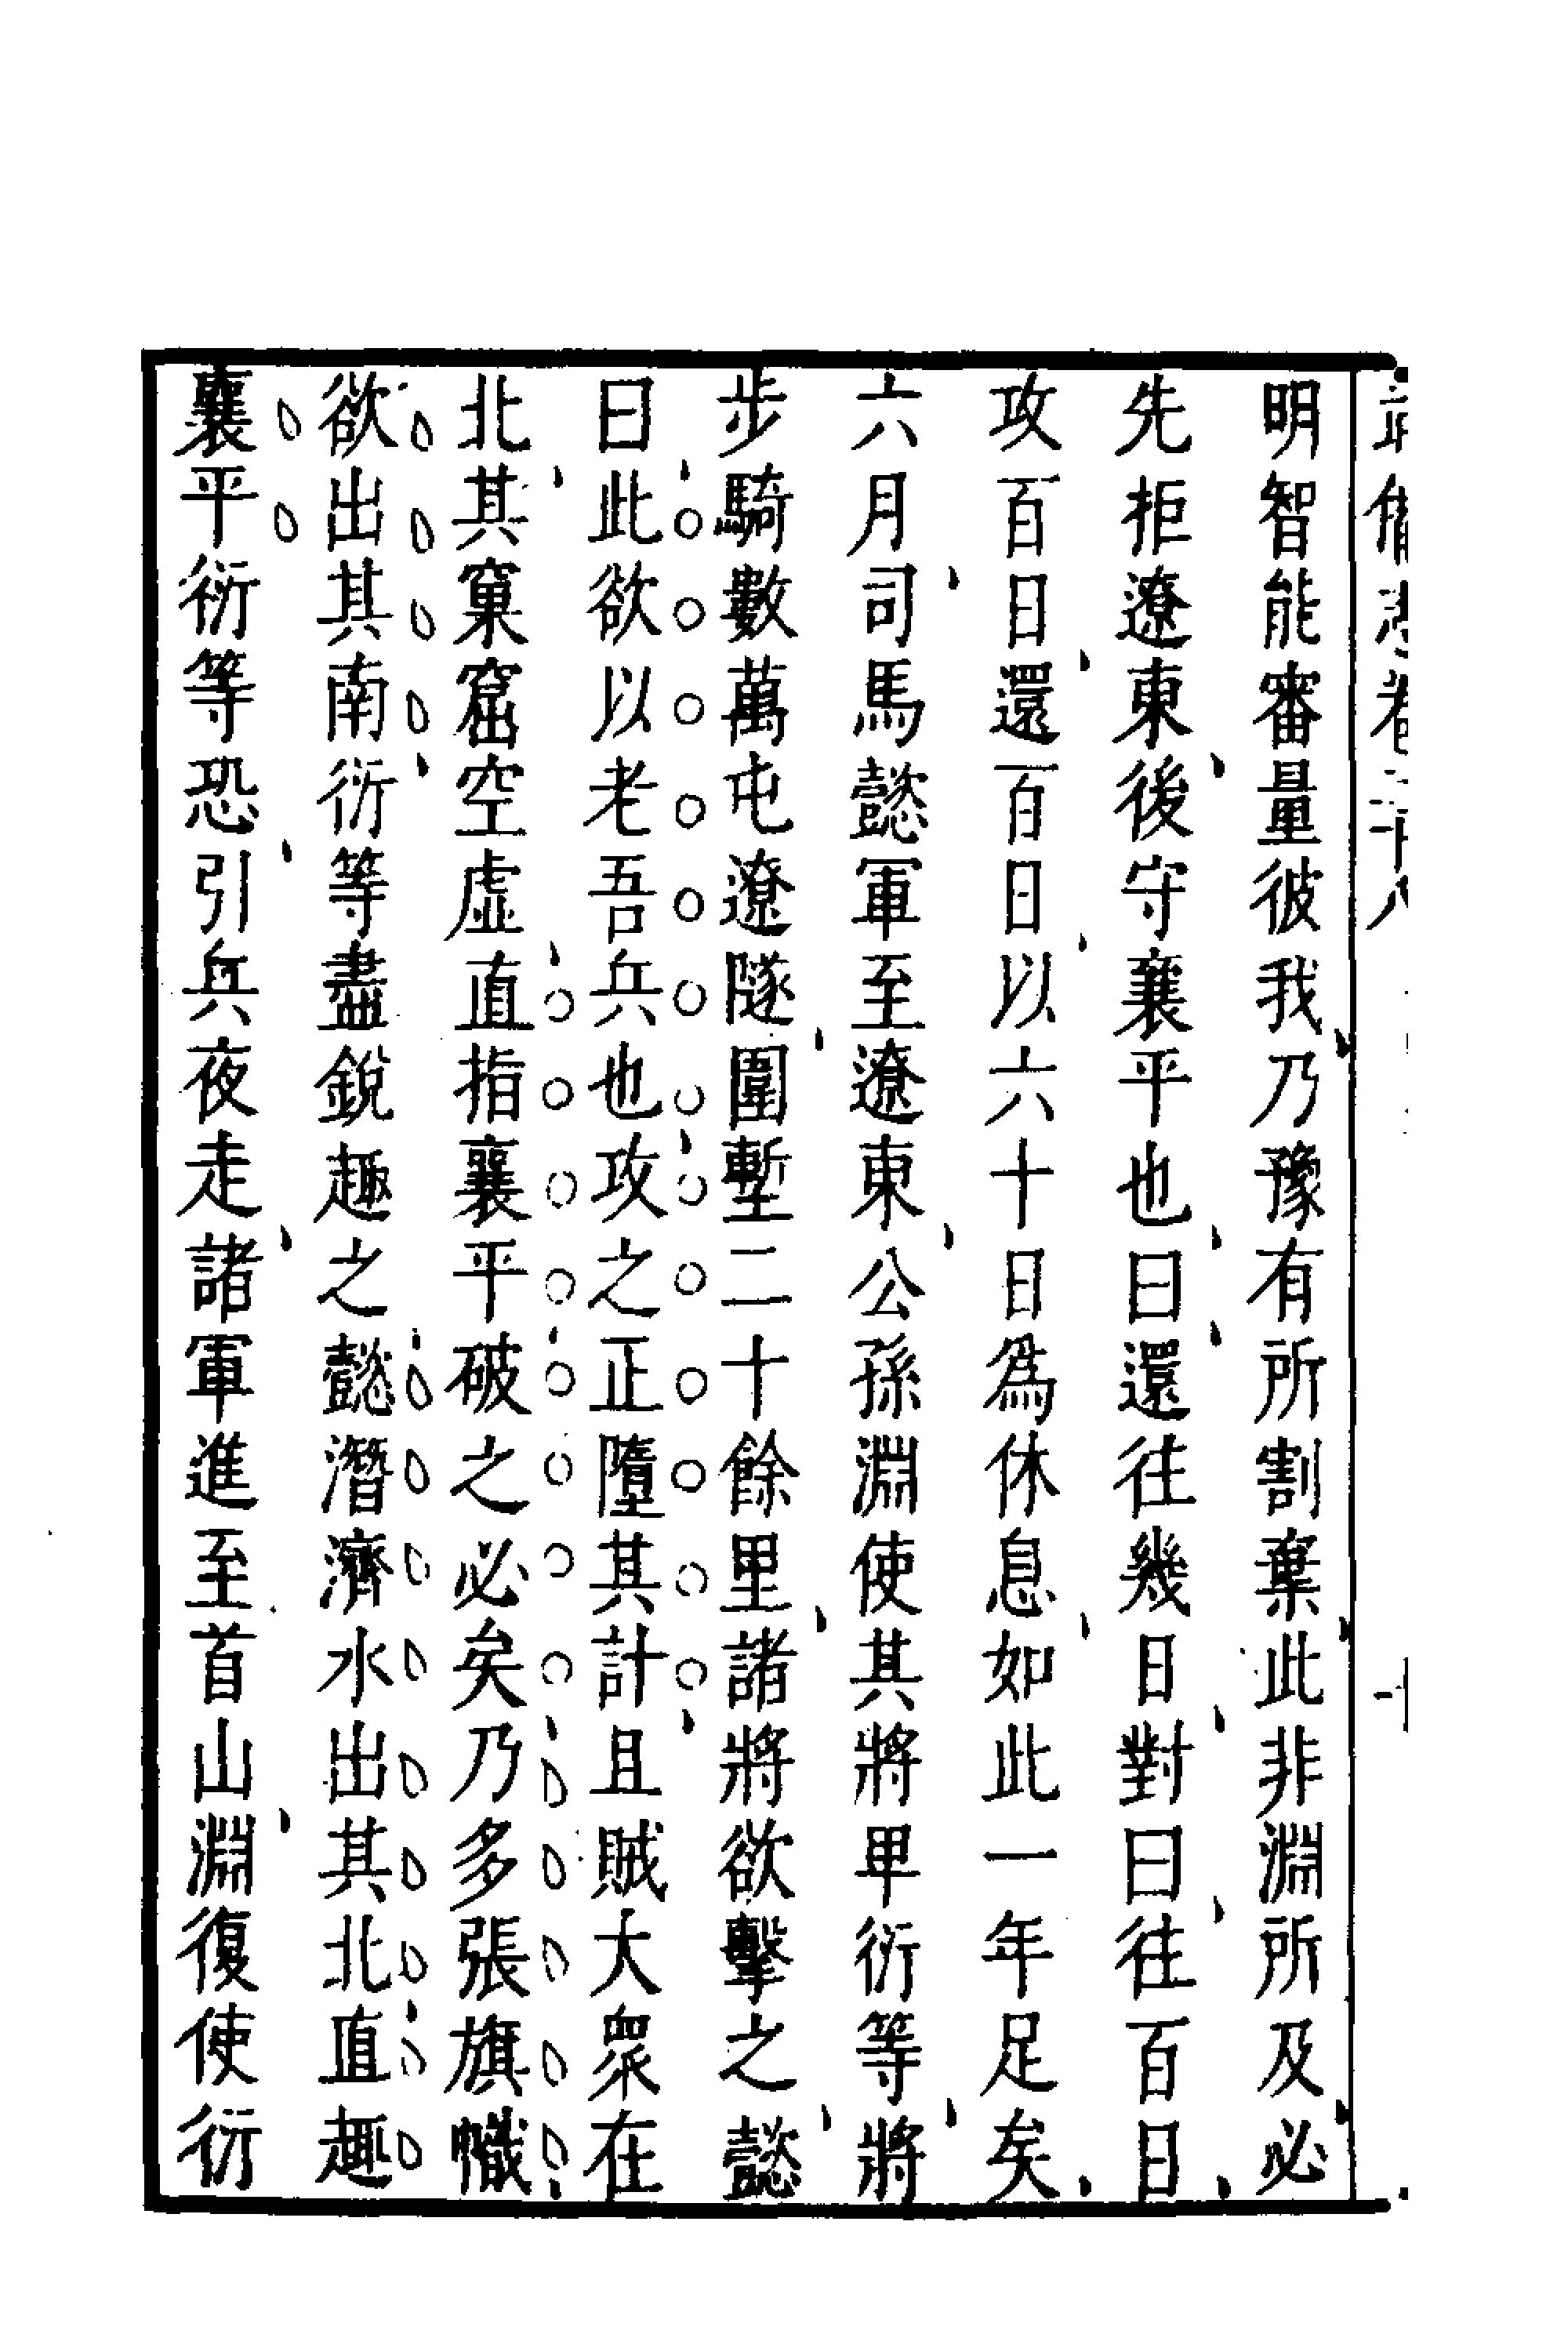 明智能審量彼我乃豫有所割棄此非淵所及必
先拒遼東後守襄平也曰還往幾日對曰往百日
攻百日還百日以六十日爲休息如此一年足矣
六月司馬懿軍至遼東公孫淵使其將卑衍等將
步騎數萬屯遼隧圍塹二十餘里諸將欲擊之懿
曰此欲以老吾兵也攻之正墮其計且賊大衆在
北其窠窟空虛直指襄平破之必矣乃多張旗幟
欲出其南衍等盡銳趣之懿潛濟水出其北直趣
襄平衍等恐引兵夜走諸軍進至首山淵復使衍